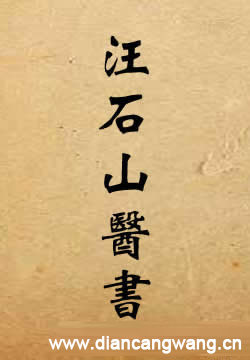 汪石山醫書
www.diancangwang.cn